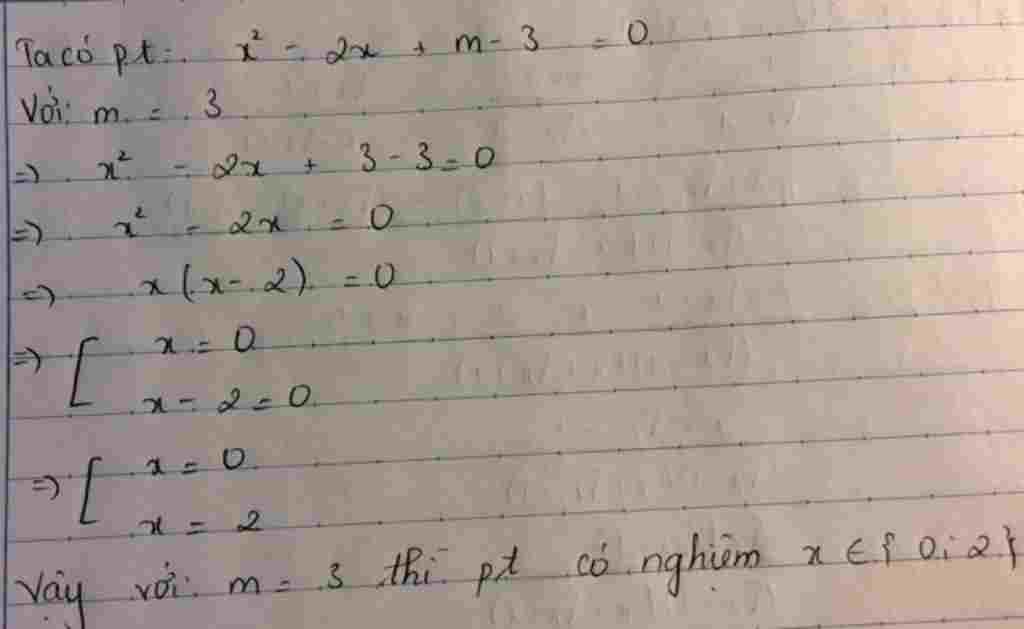 Ta có pt: x² - 2x + m - 3 = 0
Với: m = 3
=> x² - 2x + 3 - 3 = 0
=> x² - 2x = 0
=> x(x - 2) = 0
=> [ x = 0
x - 2 = 0
=> [ x = 0
x = 2
Vậy với: m = 3 thì pt có nghiệm x ∈ { 0; 2 }